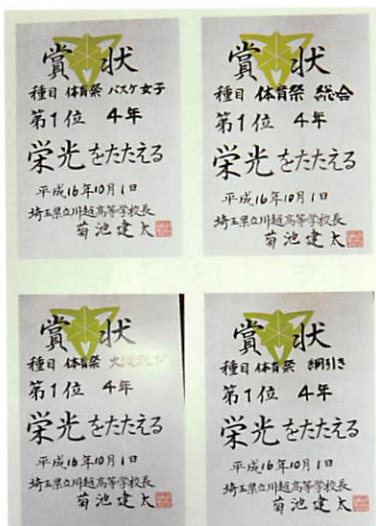 賞状
種目 体育祭 バスケ女子
第1位 4年
栄光をたたえる
平成16年10月1日
埼玉県立川越高等学校長
菊池建太
賞状
種目 体育祭 総合
第1位 4年
栄光をたたえる
平成16年10月1日
埼玉県立川越高等学校長
菊池建太
賞状
種目 体育祭
第1位 4年
栄光をたたえる
平成16年10月1日
埼玉県立川越高等学校長
菊池建太
賞状
種目 体育祭 綱引き
第1位 4年
栄光をたたえる
平成16年10月1日
埼玉県立川越高等学校長
菊池建太